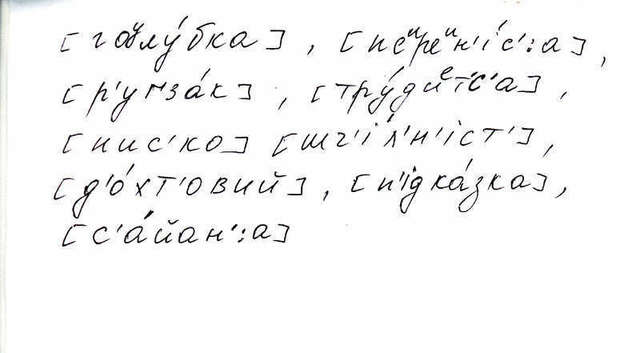 [гоᵘлу́бка], [пеᵘреᵘн'і́с':а],
[р'угза́к], [тру́диᵉтс'а],
[нис'ко] [шч'і́л'н'іст'],
[д'о́хт'овий], [п'ідка́зка],
[с'а́йан':а]